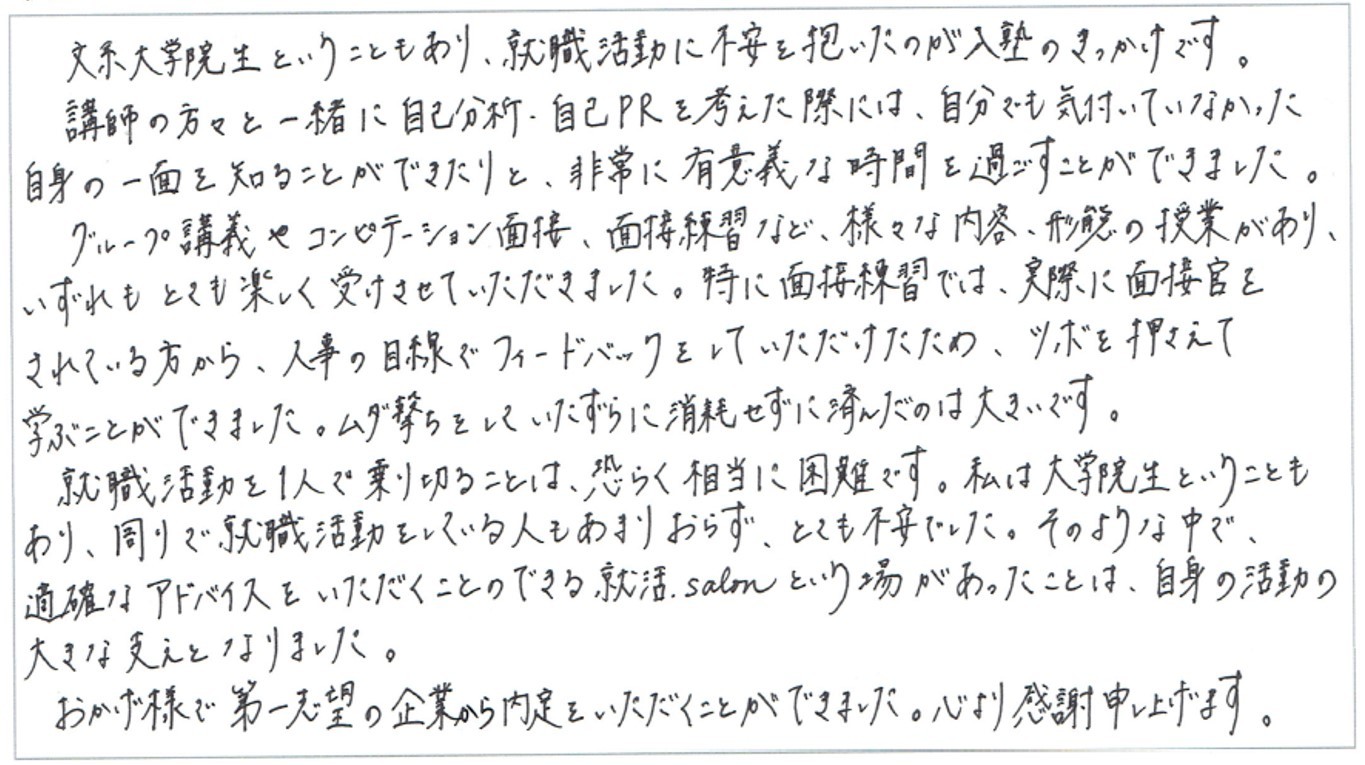 文系大学院生ということもあり、就職活動に不安を抱いたのが入塾のきっかけです。
講師の方々と一緒に自己分析・自己PRを考えた際には、自分でも気付いていなかった
自身の一面を知ることができたりと、非常に有意義な時間を過ごすことができました。
グループ講義やコンピテーション面接、面接練習など、様々な内容、形態の授業があり、
いずれもとても楽しく受けさせていただきました。特に面接練習では、実際に面接官を
されている方から、人事の目線でフィードバックをしていただけたため、ツボを押さえて
学ぶことができました。ムダ撃ちをしていたずらに消耗せずに済んだのは大きいです。
就職活動を1人で乗り切ることは、恐らく相当に困難です。私は大学院生ということも
あり、周りで就職活動をしている人もあまりおらず、とても不安でした。そのような中で、
適確なアドバイスをいただくことのできる就活.salonという場があったことは、自身の活動の
大きな支えとなりました。
おかげ様で第一志望の企業から内定をいただくことができました。心より感謝申し上げます。